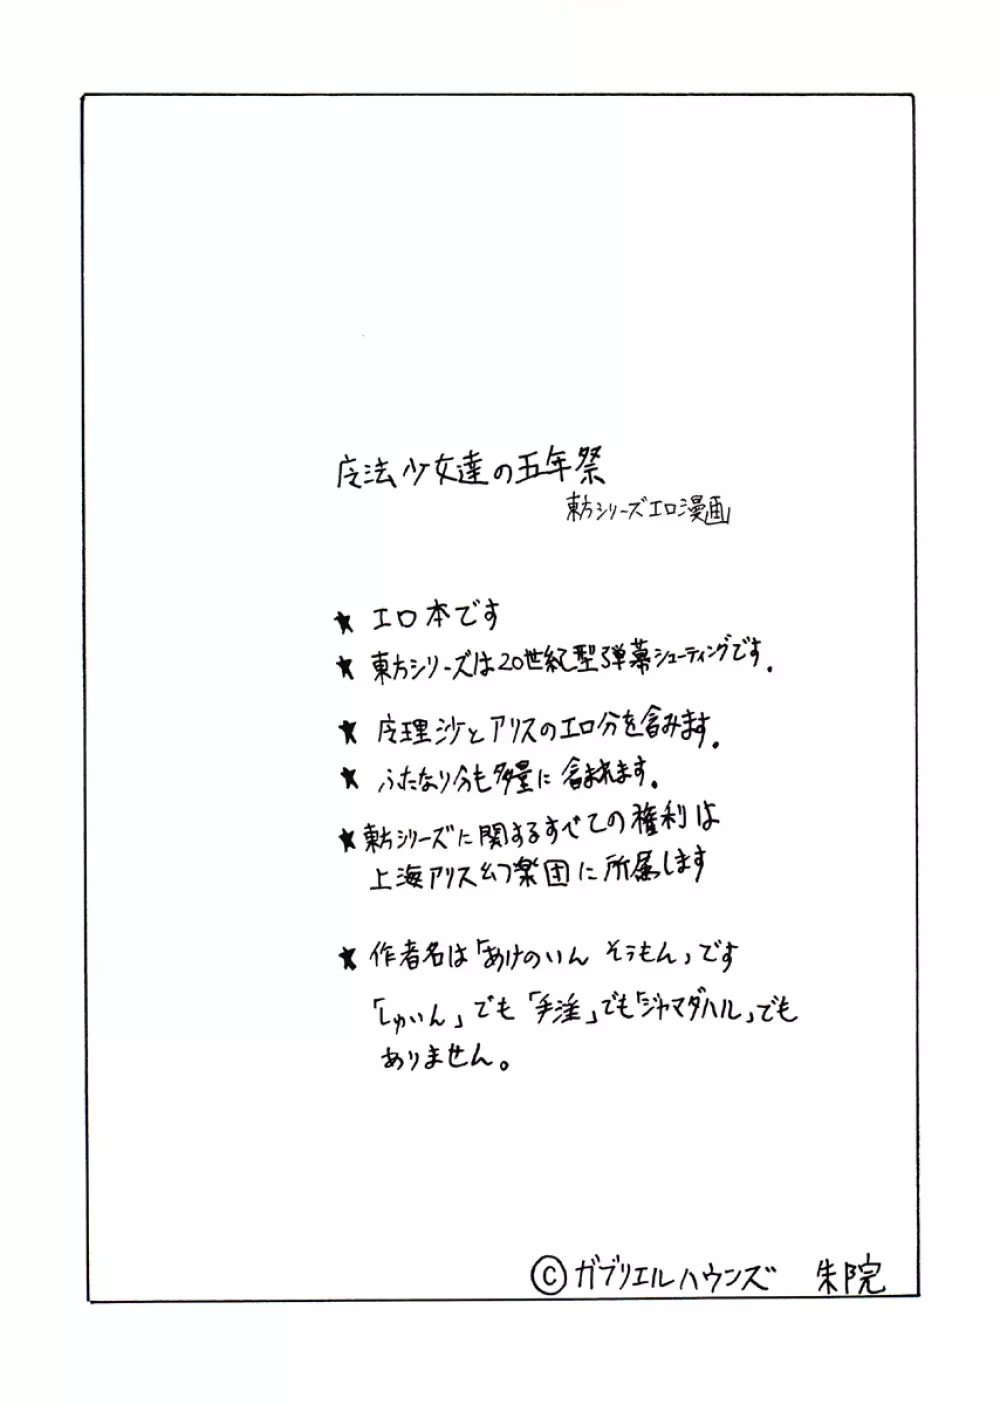 魔法少女達の五年祭
東方シリーズエロ漫画
★ エロ本です
★ 東方シリーズは20世紀型弾幕シューティングです。
★ 魔理沙とアリスのエロ分を含みます。
★ ふたなり分も多量に含まれます。
★ 東方シリーズに関するすべての権利は
上海アリス幻楽団に所属します
★ 作者名は「あけのいん そうもん」です
「しゅいん」でも「手淫」でも「ジャマダハル」でも
ありません。
©ガブリエルハウンズ 朱院